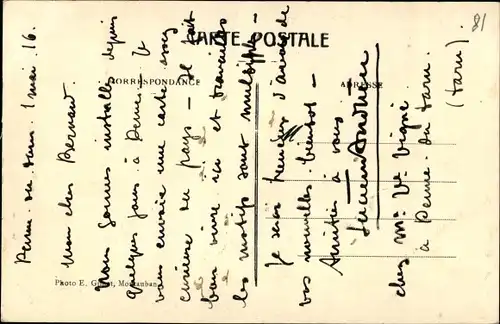 CARTE POSTALE
CORRESPONDANCE
ADRESSE
81
Penne du Tarn. 1 mai 16.
Mon cher Bernard.
Nous sommes installés depuis
quelques jours à Penne. Je
vous envoie une carte assez
curieuse du pays — Il fait
bon vivre ici et travailler
les motifs sont multiples —
Je serai heureux d'avoir de
vos nouvelles bientôt —
Amitiés à vous
Lucien
chez Mme Vve Vigné
à Penne du Tarn.
(Tarn).
Photo E. Montauban